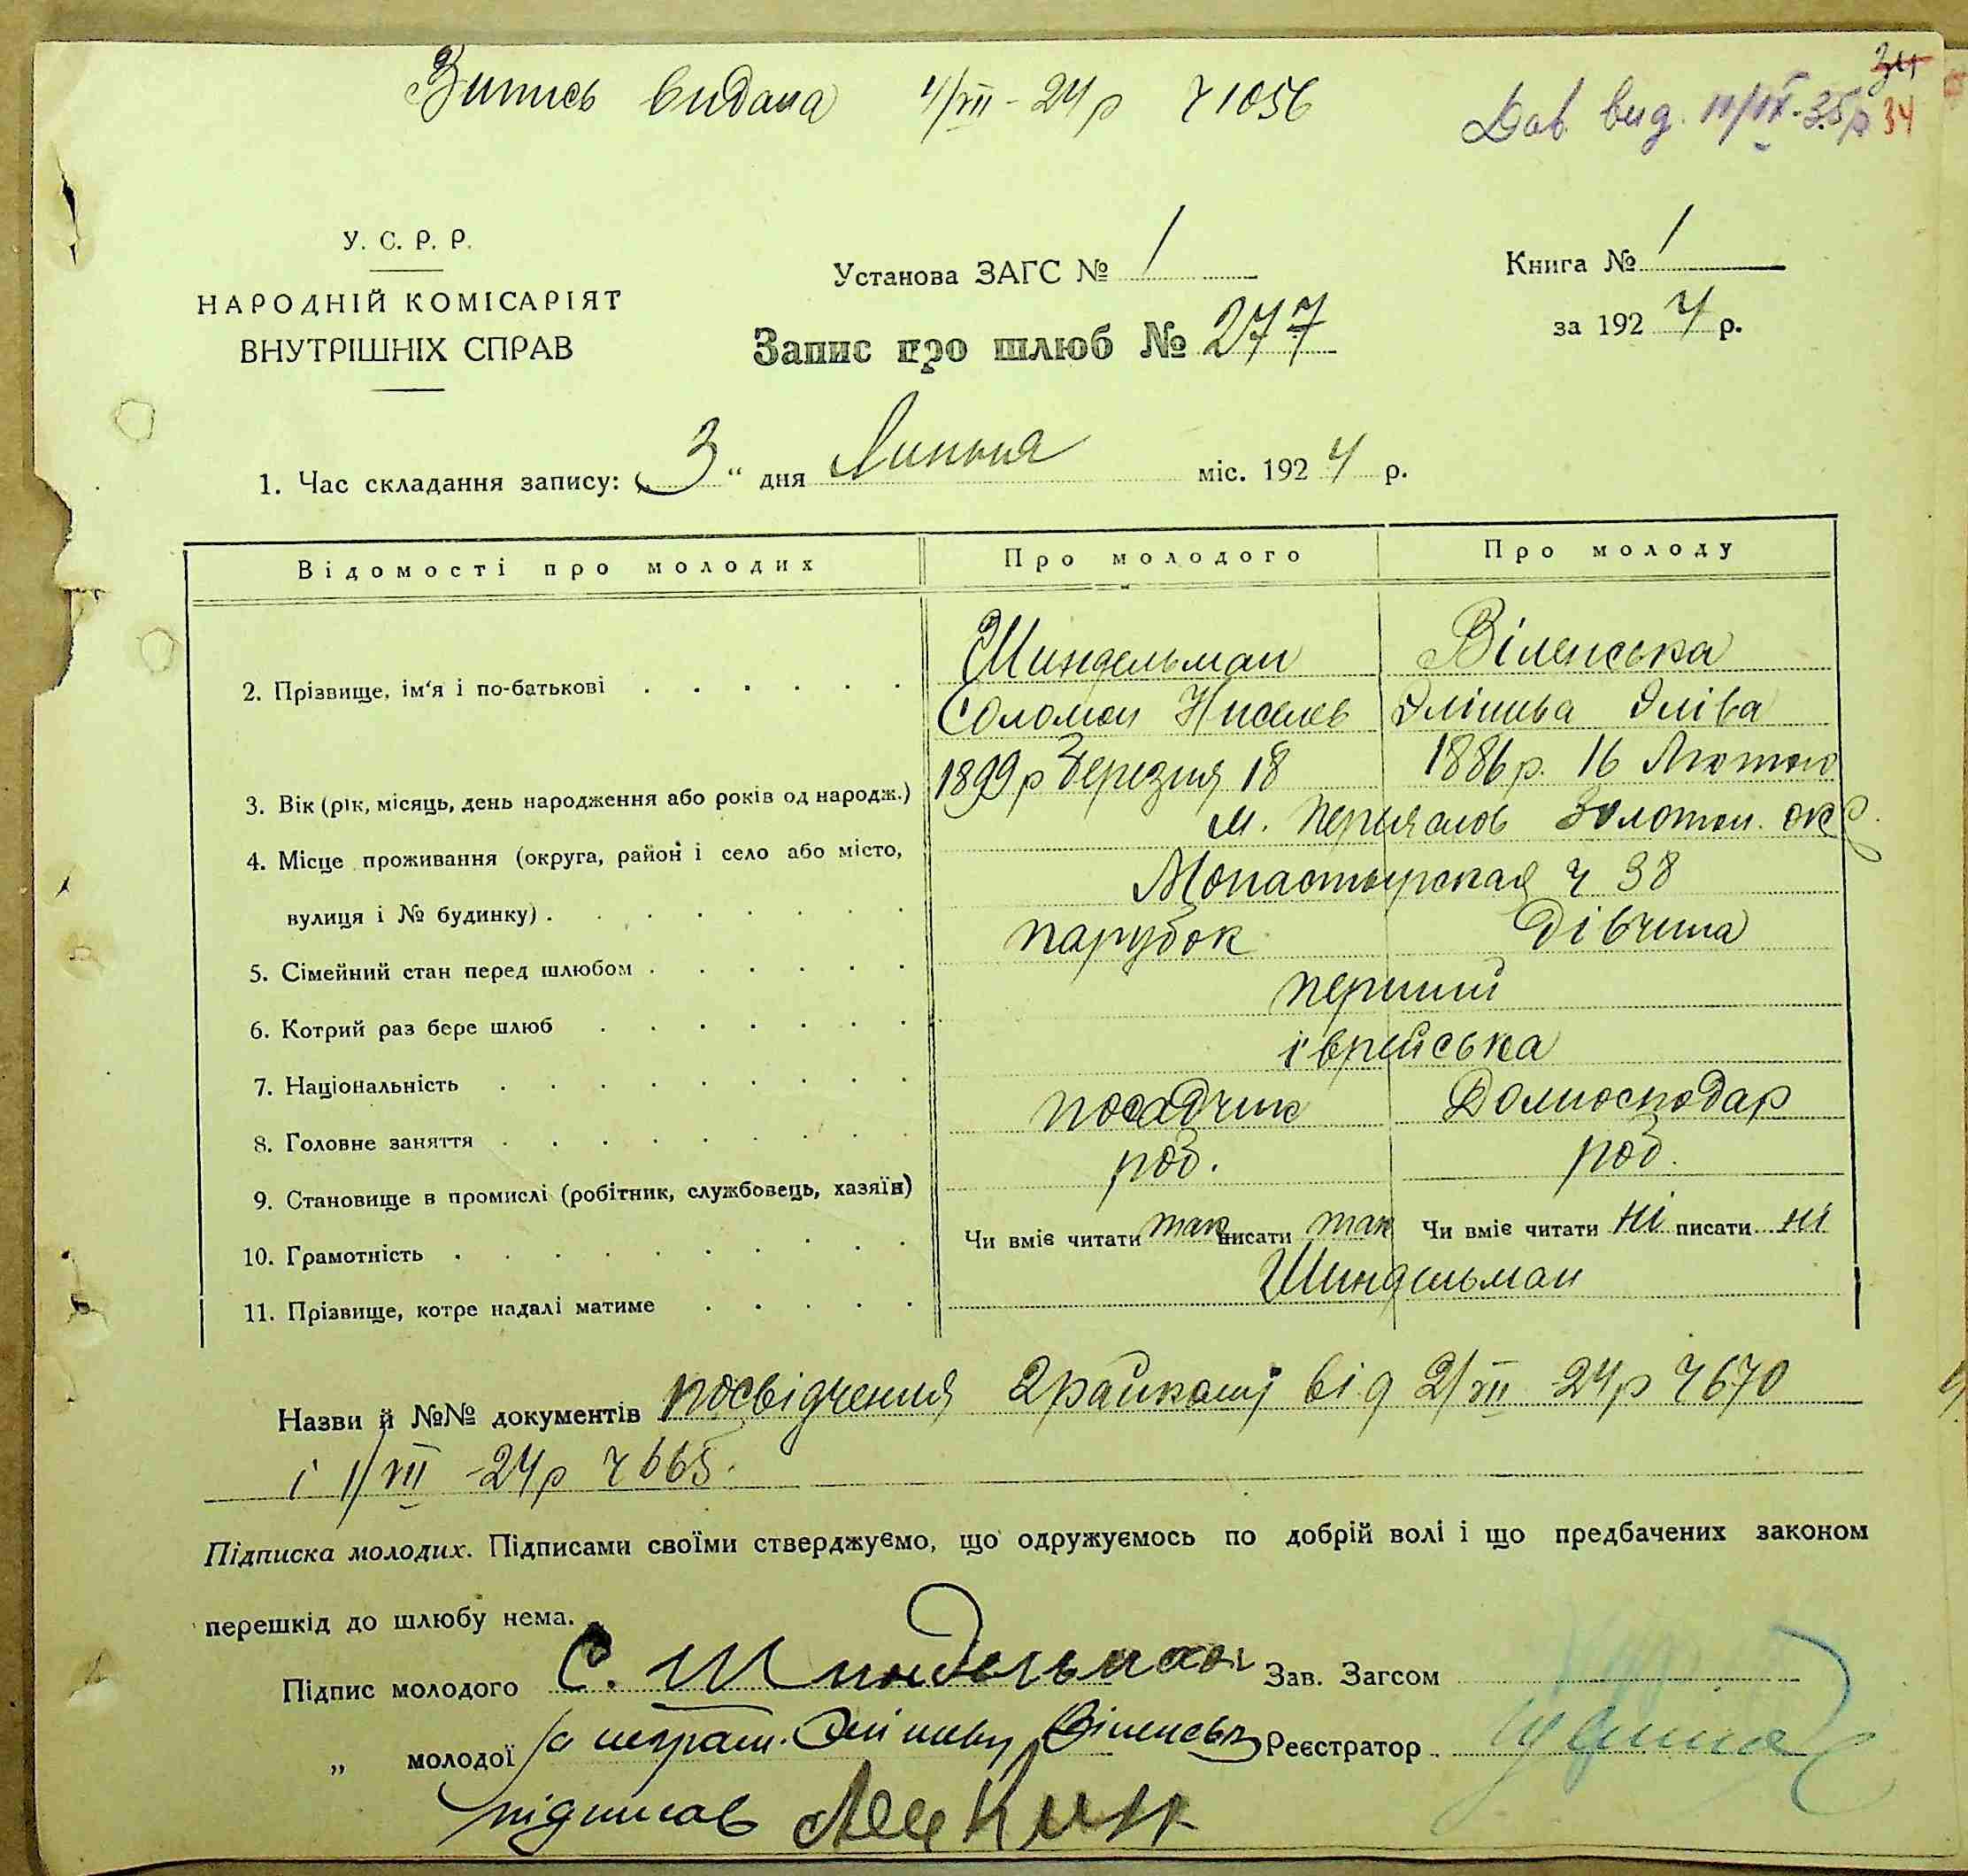 Випись видана 4/VII - 24 р ч 1056
Дов. вид. 11/IX - 35 р 34
34
У. С. Р. Р.
НАРОДНІЙ КОМІСАРІЯТ
ВНУТРІШНІХ СПРАВ
Установа ЗАГС № 1
Книга № 1
за 1924 р.
Запис про шлюб № 277
1. Час складання запису: „3“ дня Липня міс. 1924 р.
Відомості про молодих Про молодого Про молоду
2. Прізвище, ім'я і по-батькові Шиндельман Віленська
Соломон Ниселев Элишва Эліва
3. Вік (рік, місяць, день народження або років од народж.) 1899 р Березня 18 1886 р. 16 Лютого
4. Місце проживання (округа, район і село або місто, м. Переяслов Золотон. окр.
вулиця і № будинку) Монастырская ч 38
5. Сімейний стан перед шлюбом парубок дівчина
6. Котрий раз бере шлюб перший
7. Національність іврейська
8. Головне заняття посадчик Домгосподар
9. Становище в промислі (робітник, службовець, хазяїн) роб. роб.
10. Грамотність Чи вміє читати так писати так Чи вміє читати ні писати ні
11. Прізвище, котре надалі матиме Шиндельман
Назви й №№ документів посвідчення 2 райкому від 2/VII - 24 р ч 670
і 1/VII - 24 р ч 665.
Підписка молодих. Підписами своїми стверджуємо, що одружуємось по добрій волі і що предбачених законом
перешкід до шлюбу нема.
Підпис молодого С. Шиндельман Зав. Загсом
„ молодої за неграм. Элишву Віленську Реєстратор
підписав